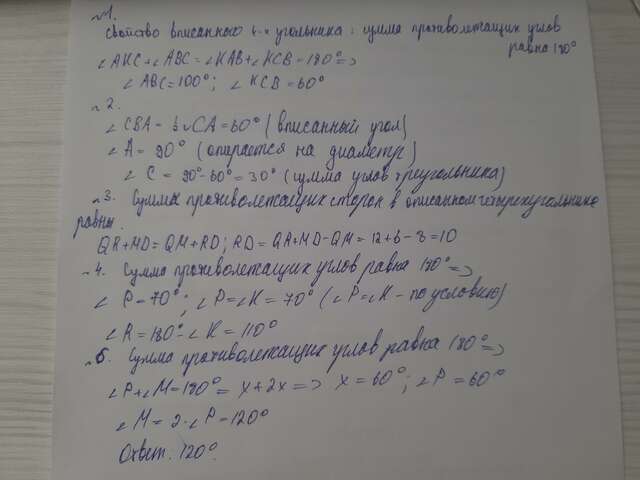 №1.
Свойство вписанного 4-х угольника: сумма противолежащих углов
равна 180°
∠AKC+∠ABC=∠KAB+∠KCB=180°=>
∠ABC=100°; ∠KCB=60°
№2.
∠CBA= ½ ◡CA=60° (вписанный угол)
∠A= 90° (опирается на диаметр)
∠C = 90°-60°=30° (сумма углов треугольника)
№3. Суммы противолежащих сторон в описанном четырехугольнике
равны.
QR+MD=QM+RD; RD=QR+MD-QM=12+6-8=10
№4. Сумма противолежащих углов равна 180°=>
∠P=70°; ∠P=∠K=70° (∠P=∠K - по условию)
∠R=180°-∠K=110°
№5. Сумма противолежащих углов равна 180°=>
∠P+∠M=180°=x+2x=> x=60°; ∠P=60°
∠M=2·∠P=120°
Ответ: 120°.